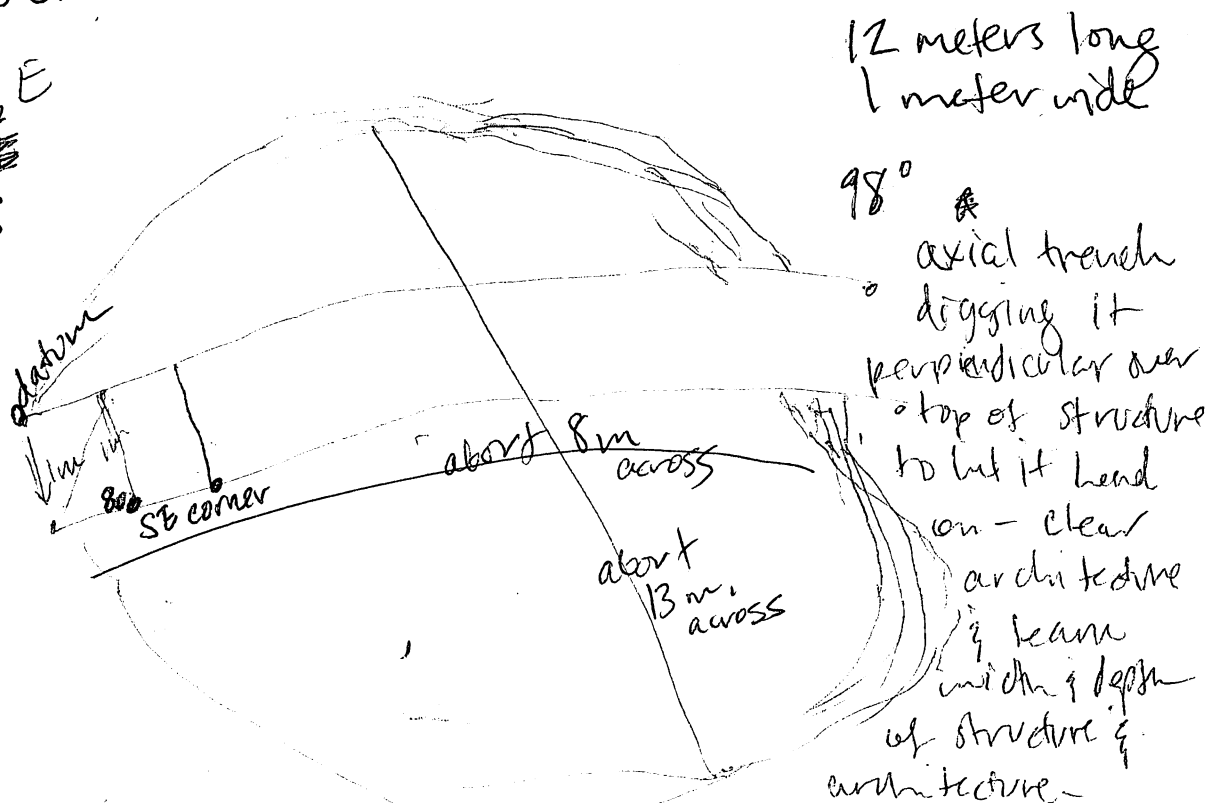 E
12 meters long
1 meter wide
98°
axial trench
digging it
perpendicular over
top of structure
to hit it head
on - clear
architecture
& learn
width & depth
of structure &
architecture-
datum
1m
SE corner
about 8m
across
about
13 m.
across